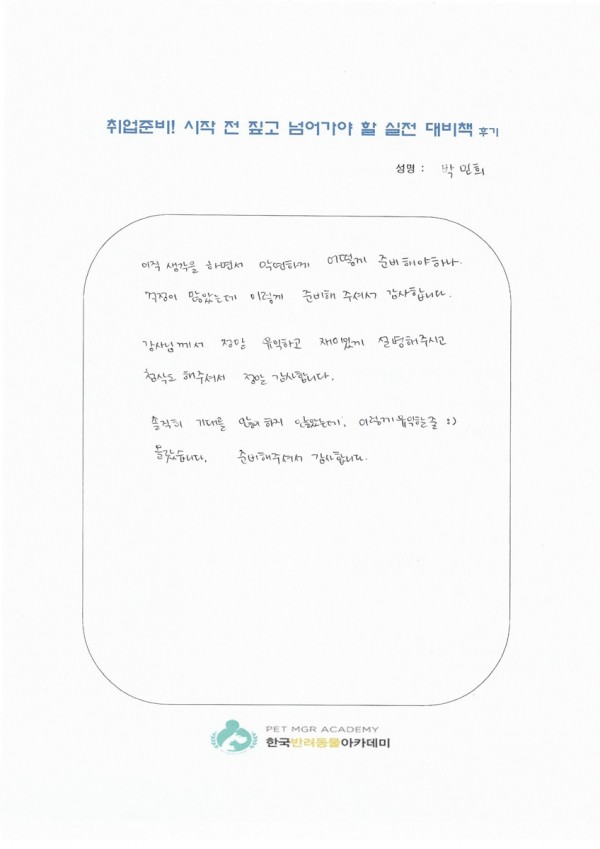 취업준비! 시작 전 짚고 넘어가야 할 실전 대비책 후기
성명 : 박민희
이직 생각을 하면서 막연하게 어떻게 준비해야하나.
걱정이 많았는데 이렇게 준비해 주셔서 감사합니다.
강사님께서 정말 유익하고 재미있게 설명해주시고
첨삭도 해주셔서 정말 감사합니다.
솔직히 기대를 많이 하지 않았는데, 이렇게 유익할 줄 :)
몰랐습니다. 준비해주셔서 감사합니다.
PET MGR ACADEMY
한국반려동물아카데미